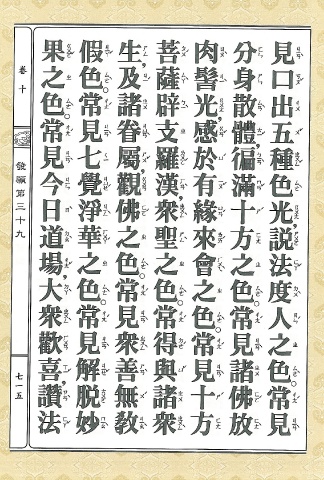 見口出五種色光，說法度人之色。常見
分身散體，徧滿十方之色。常見諸佛放
肉髻光，感於有緣來會之色。常見十方
菩薩辟支羅漢眾聖之色。常得與諸眾
生，及諸眷屬，觀佛之色。常見眾善無教
假色。常見七覺淨華之色。常見解脫妙
果之色。常見今日道場，大眾歡喜，讚法
卷十
發願第三十九
七一五